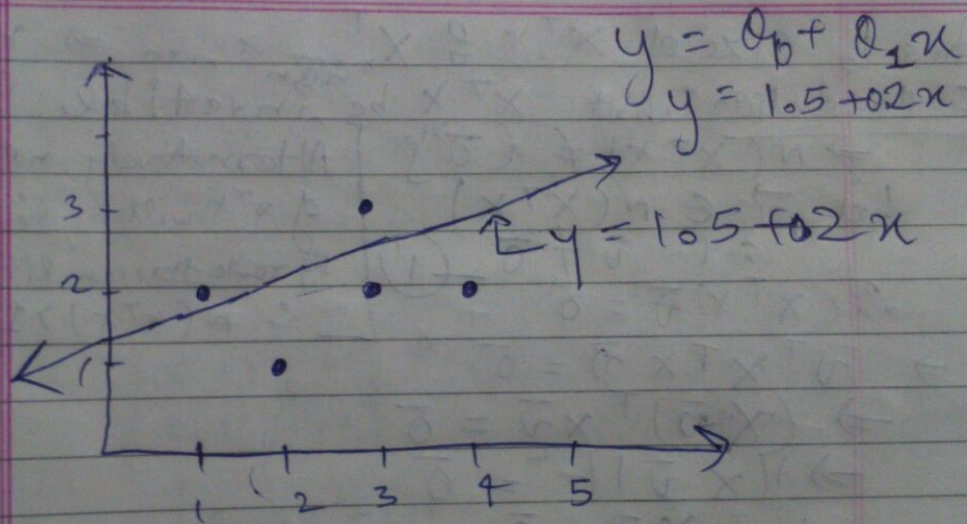 y = θ₀ + θ₁x
y = 1.5 + 02x
3
y = 1.5 + 02x
2
1
1 2 3 4 5